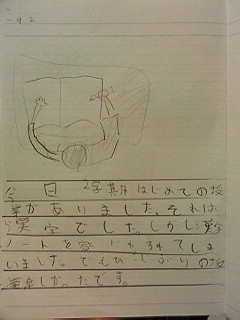 今日2学期はじめての授
業がありました。それは
漢字でした。しかし漢字
ノートを家にわすれてしま
いました。でもの授
業楽しかったです。